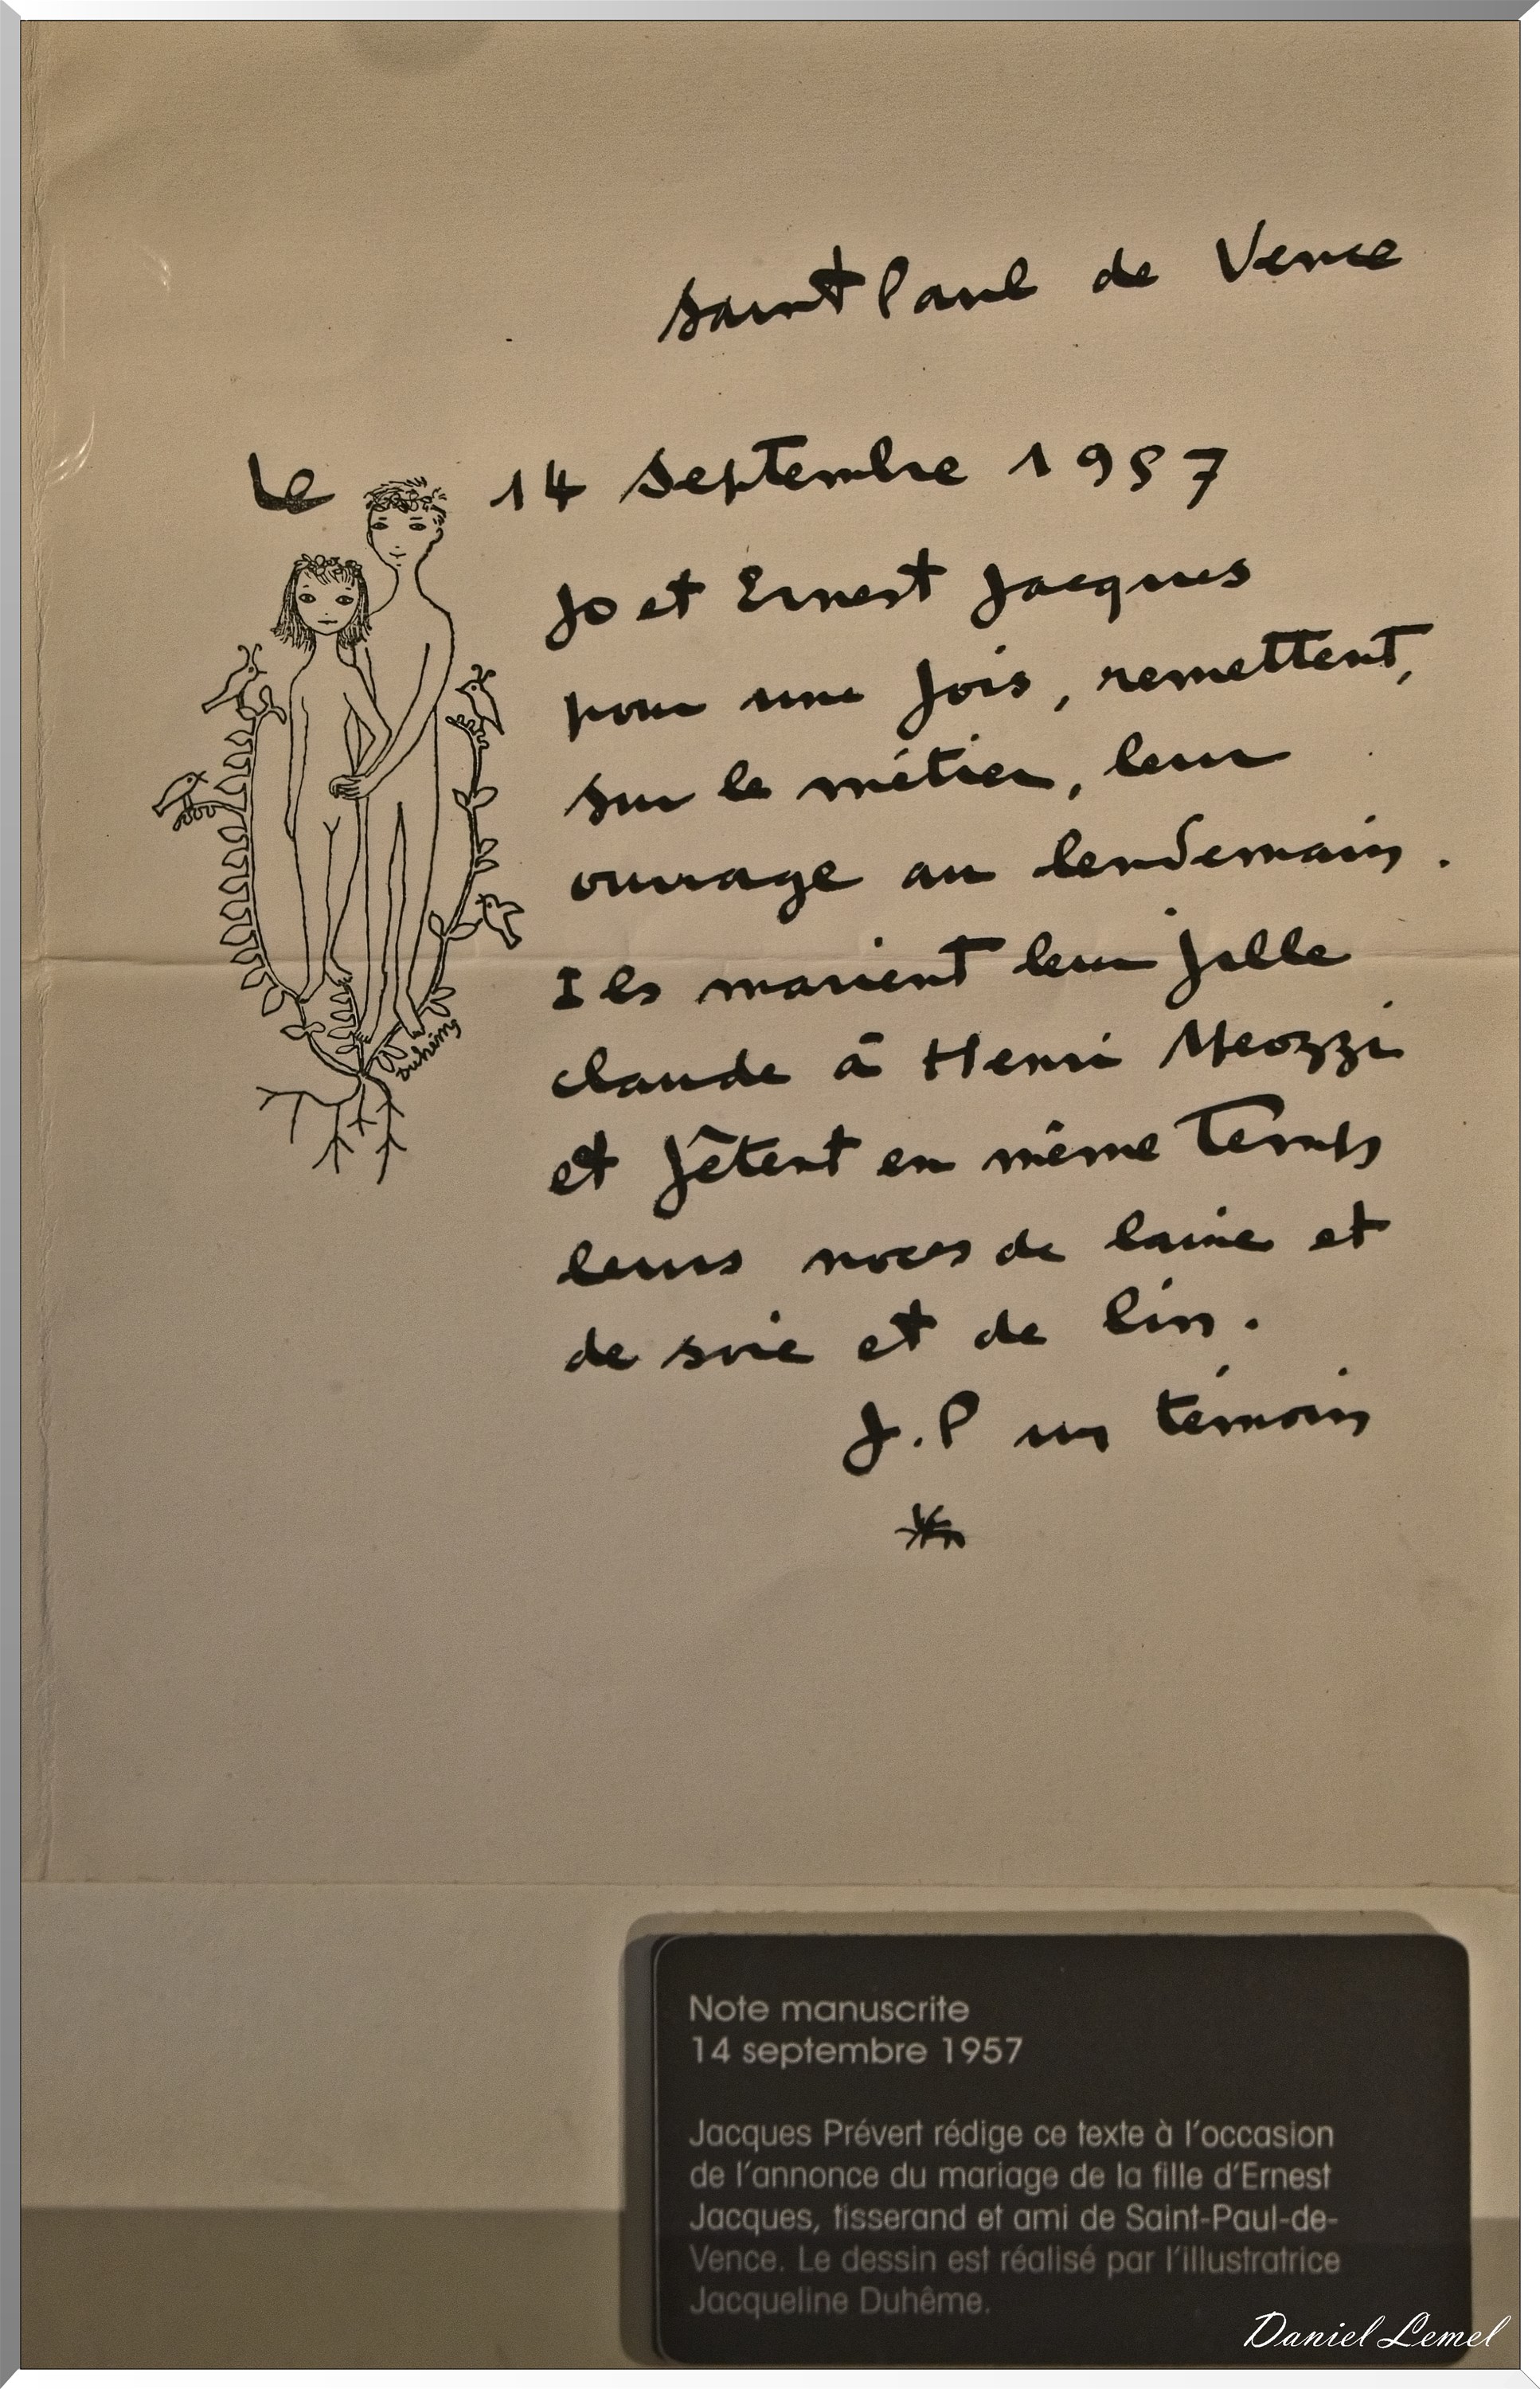 Saint Paul de Vence
Le 14 Septembre 1957
Jo et Ernest Jacques
pour une fois, remettent,
sur le métier, leur
ouvrage au lendemain.
Ils marient leur fille
claude à Henri Meozzi
et fêtent en même temps
leurs noces de laine et
de soie et de lin.
J.P un témoin
Duhême
Note manuscrite
14 septembre 1957
Jacques Prévert rédige ce texte à l'occasion
de l'annonce du mariage de la fille d'Ernest
Jacques, tisserand et ami de Saint-Paul-de-
Vence. Le dessin est réalisé par l'illustratrice
Jacqueline Duhême.
Daniel Lemel